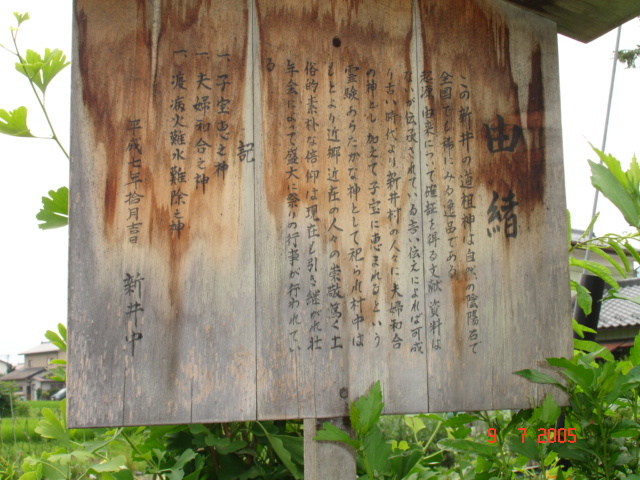 由緒
この新井の道祖神は自然の陰陽石で
全国でも稀にみる逸品である
起源由来について確証を得る文献資料は
ないが伝承されている言い伝えによれば可成
り古い時代より新井村の人々に夫婦和合
の神とし加えて子宝に恵まれるという
霊験あらたかな神として祀られ村中は
もとより近郷近在の人々の崇敬篤く土
俗的素朴な信仰は現在も引き継がれ壮
年会によって盛大に祭りの行事が行われてい
る
記
一、子宝恵之神
一、夫婦和合之神
一、渡病火難水難除之神
平成七年拾月吉日
新井中
9 7 2005